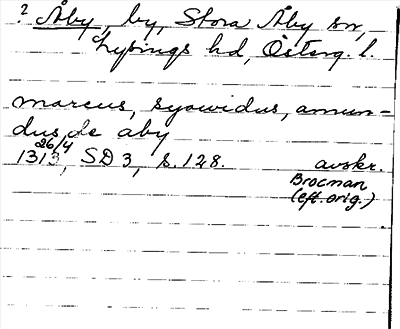 ? Åby, by, Stora Åby sn,
Lysings hd, Österg. l.
marcus, syowidus, amun-
dus de aby
26/4
1313, SD 3, s. 128. avskr.
Brocman
(eft. orig.)